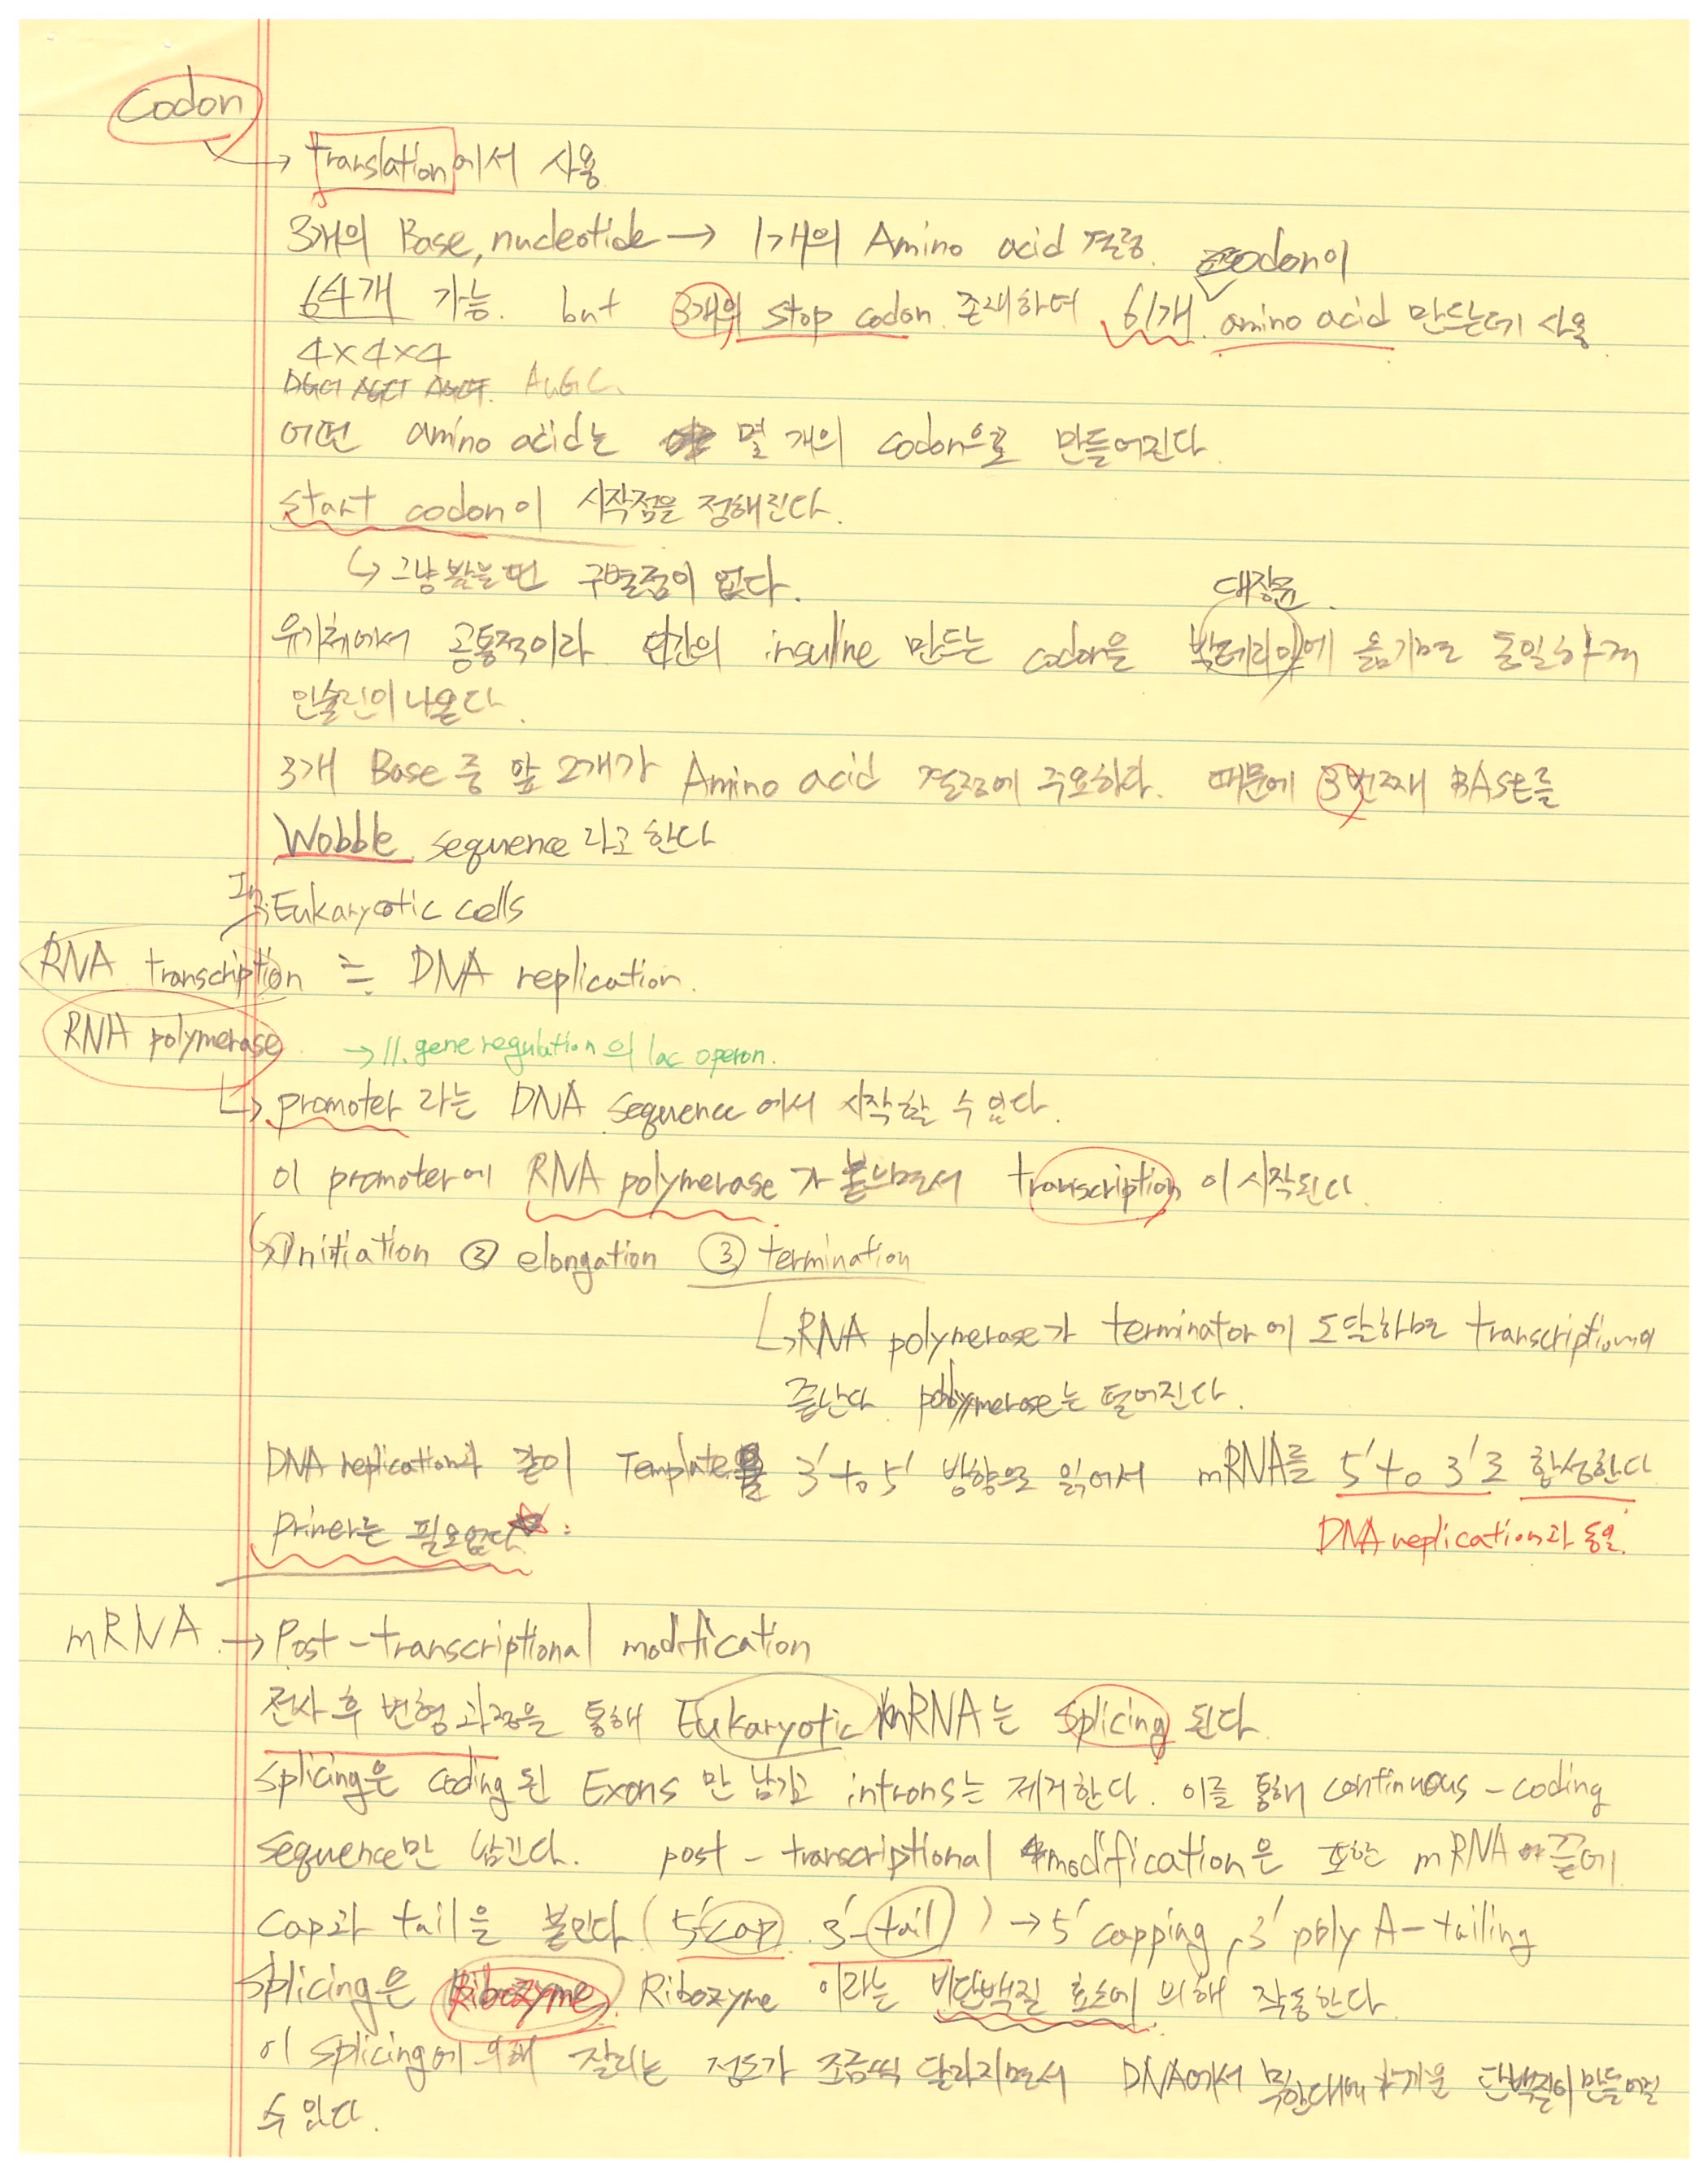 codon
→ translation에서 사용
3개의 Base, nucleotide → 1개의 Amino acid 결정. codon이
64개 가능. but 3개의 stop codon 존재하며 61개 amino acid 만드는데 사용
4×4×4
AuGC
어떤 amino acid는 몇 개의 codon으로 만들어진다
start codon이 시작점을 정해준다.
↳ 그냥 봤을 땐 구별점이 없다.
대장균.
유기체에서 공통적이라 인간의 insuline 만드는 codon을 박테리아에 옮기면 동일하게
인슐린이 나온다.
3개 Base 중 앞 2개가 Amino acid 결정에 주요하다. 때문에 3번째 BASE를
Wobble sequence 라고 한다
In Eukaryotic cells
RNA transcription ≒ DNA replication.
RNA polymerase → 11. gene regulation의 lac operon.
↳ promoter 라는 DNA sequence 에서 시작할 수 있다.
이 promoter에 RNA polymerase 가 붙으면서 transcription 이 시작된다.
↳ ① Initiation ② elongation ③ termination
↳ RNA polymerase가 terminator 에 도달하면 transcription이
끝난다 polymerase는 떨어진다.
DNA replication과 같이 Template를 3' to 5' 방향으로 읽어서 mRNA를 5' to 3'로 합성한다
primer는 필요없다☆: DNA replication과 동일.
mRNA → Post-transcriptional modification
전사 후 변형 과정을 통해 Eukaryotic mRNA는 splicing 된다.
splicing은 coding 된 Exons 만 남기고 introns는 제거한다. 이를 통해 continuous-coding
sequence만 남긴다. post-transcriptional modification은 또한 mRNA 끝에
cap과 tail을 붙인다 (5'cap 3'-tail) → 5' capping, 3' poly A-tailing
splicing은 Ribozyme Ribozyme 이라는 비단백질 효소에 의해 작동한다.
이 splicing에 의해 잘리는 정도가 조금씩 달라지면서 DNA에서 무한대에 가까운 단백질이 만들어질
수 있다.